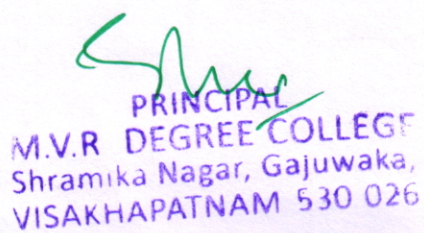 PRINCIPAL
M.V.R DEGREE COLLEGE
Shramika Nagar, Gajuwaka,
VISAKHAPATNAM 530 026